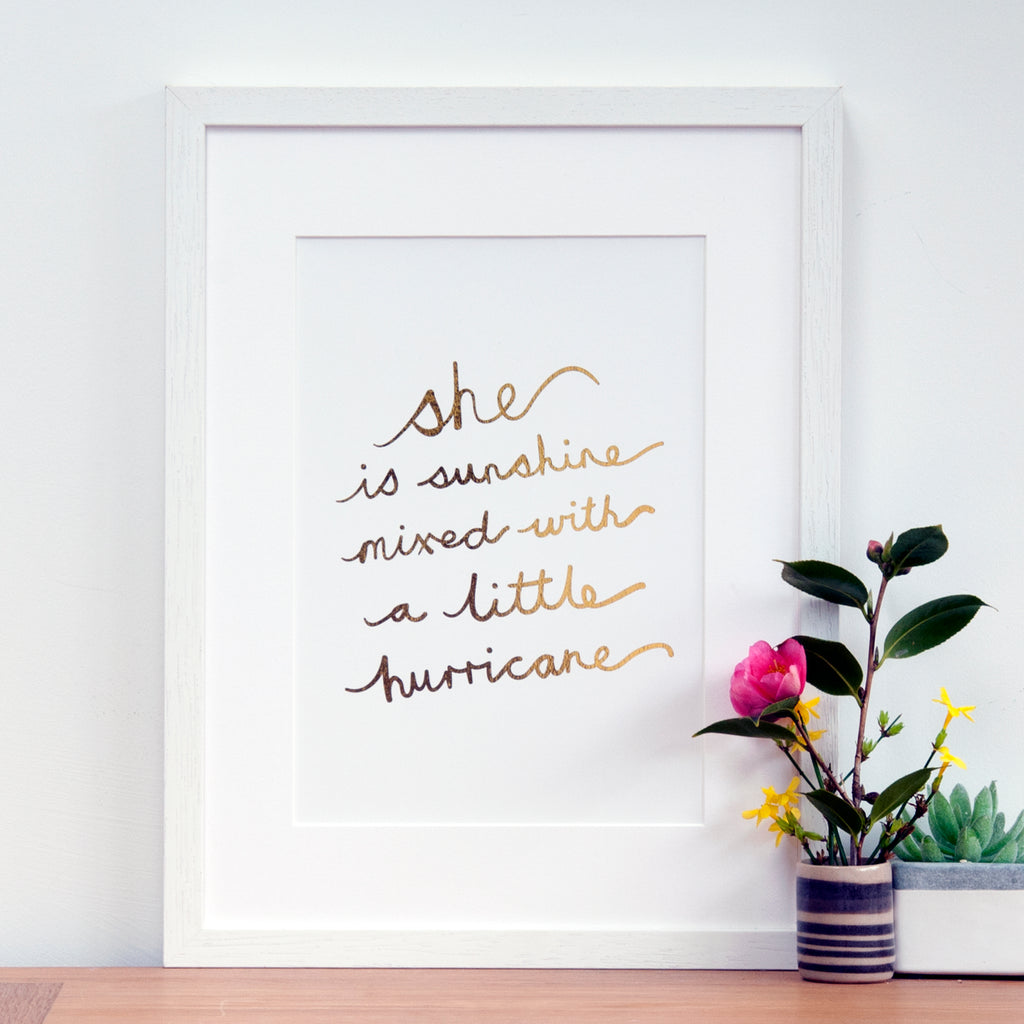 she
is sunshine
mixed with
a little
hurricane